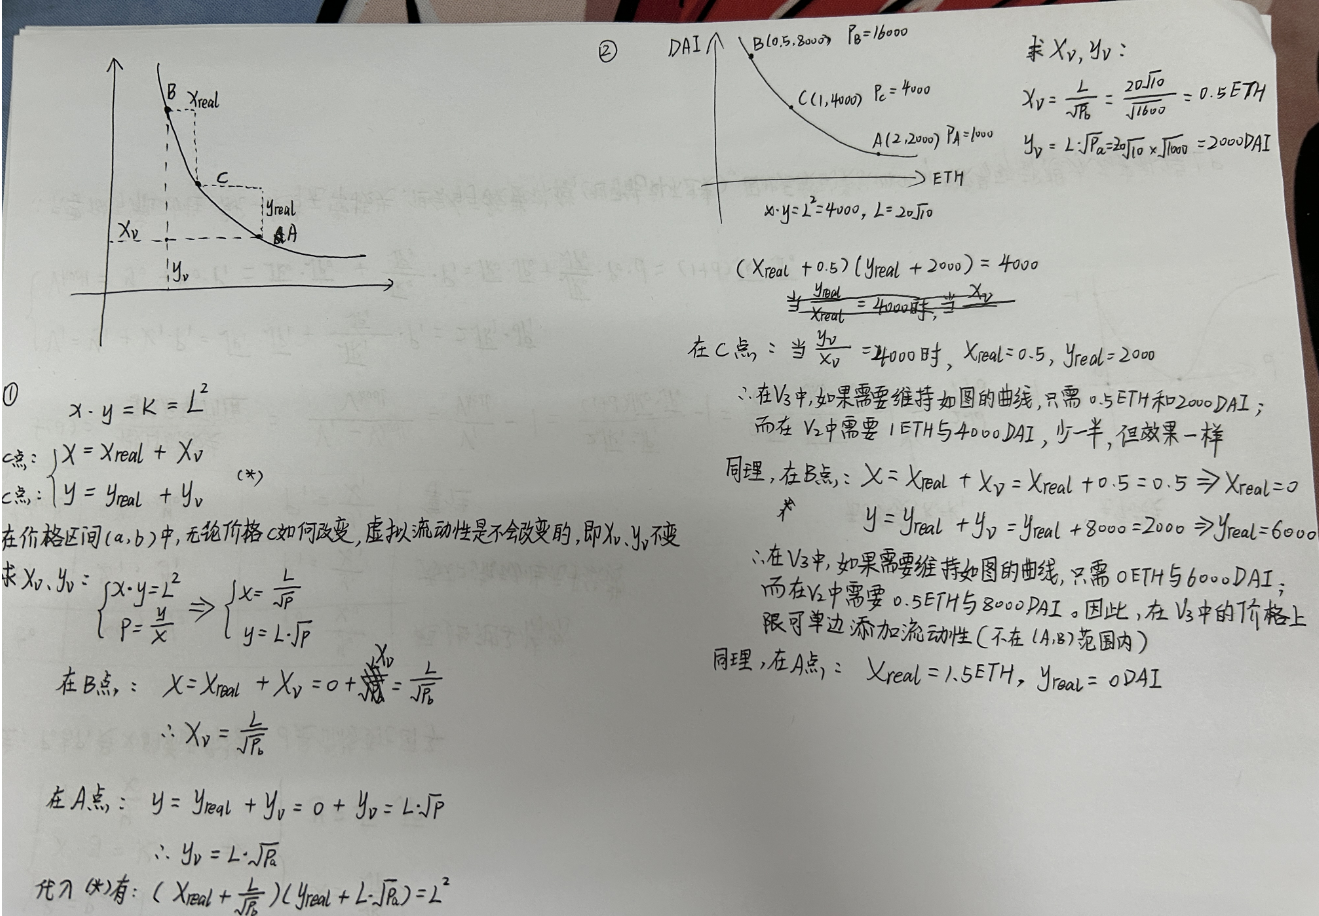 B
Xreal
C
yreal
A
Xv
yv
①
x·y=K=L²
C点: X=Xreal+Xv
C点: y=yreal+yv (*)
在价格区间(a,b)中,无论价格C如何改变,虚拟流动性是不会改变的,即Xv、yv不变
求Xv、yv: { x·y=L² P=y/x ⇒ { x=L/√P y=L·√P
在B点: X=Xreal+Xv=0+Xv=L/√Pb
∴Xv=L/√Pb
在A点: y=yreal+yv=0+yv=L·√P
∴yv=L·√Pa
代入(*)有: (Xreal+L/√Pb)(yreal+L·√Pa)=L²
②
DAI
B(0.5,8000) PB=16000
C(1,4000) Pc=4000
A(2,2000) PA=1000
ETH
x·y=L²=4000, L=20√10
求Xv,yv:
Xv=L/√Pb=20√10/√1600=0.5ETH
yv=L·√Pa=20√10×√1000=2000DAI
(Xreal+0.5)(yreal+2000)=4000
当yreal/Xreal=4000时,当Xv
在C点: 当yv/Xv=4000时, Xreal=0.5, yreal=2000
∴在V3中,如果需要维持如图的曲线,只需0.5ETH和2000DAI;
而在V2中需要1ETH与4000DAI,少一半,但效果一样
同理,在B点: X=Xreal+Xv=Xreal+0.5=0.5⇒Xreal=0
y=yreal+yv=yreal+8000=2000⇒yreal=6000
∴在V3中,如果需要维持如图的曲线,只需0ETH与6000DAI;
而在V2中需要0.5ETH与8000DAI。因此,在V3中的价格上
限可单边添加流动性(不在(A,B)范围内)
同理,在A点: Xreal=1.5ETH, yreal=0DAI